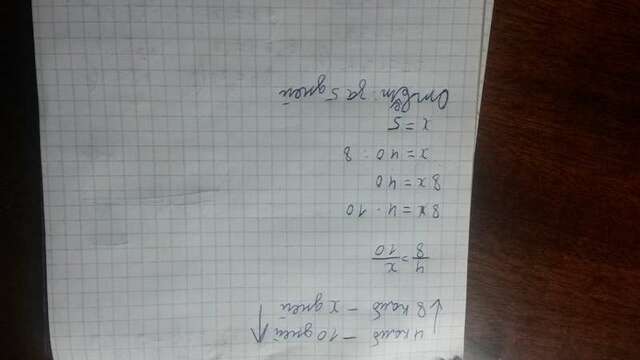 4 комб – 10 дней ↑
↓ 8 комб – x дней
4/8 = x/10
8x = 4 · 10
8x = 40
x = 40 : 8
x = 5
Ответ за 5 дней